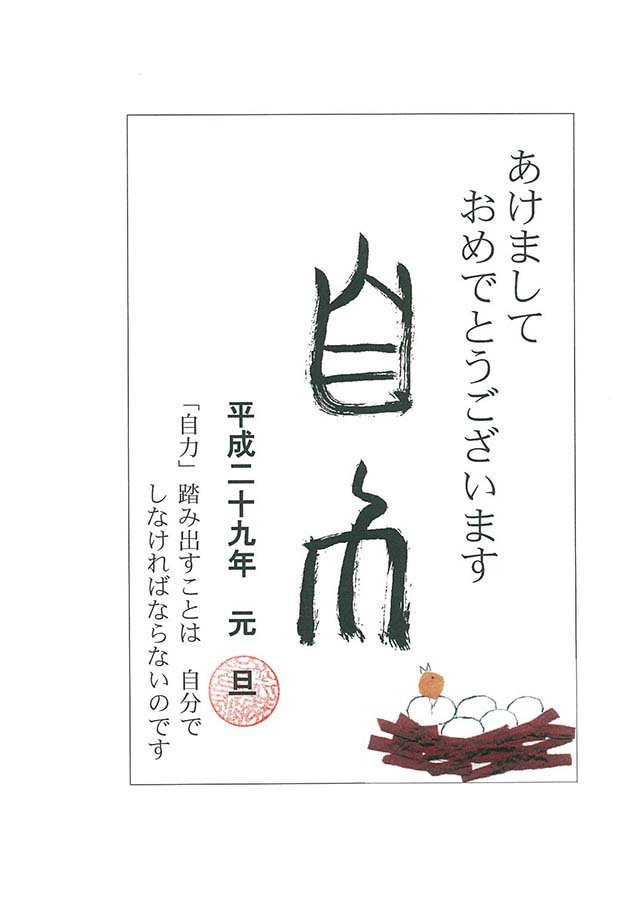 あけまして
おめでとうございます
自力
平成二十九年　元　旦
「自力」踏み出すことは　自分で
しなければならないのです